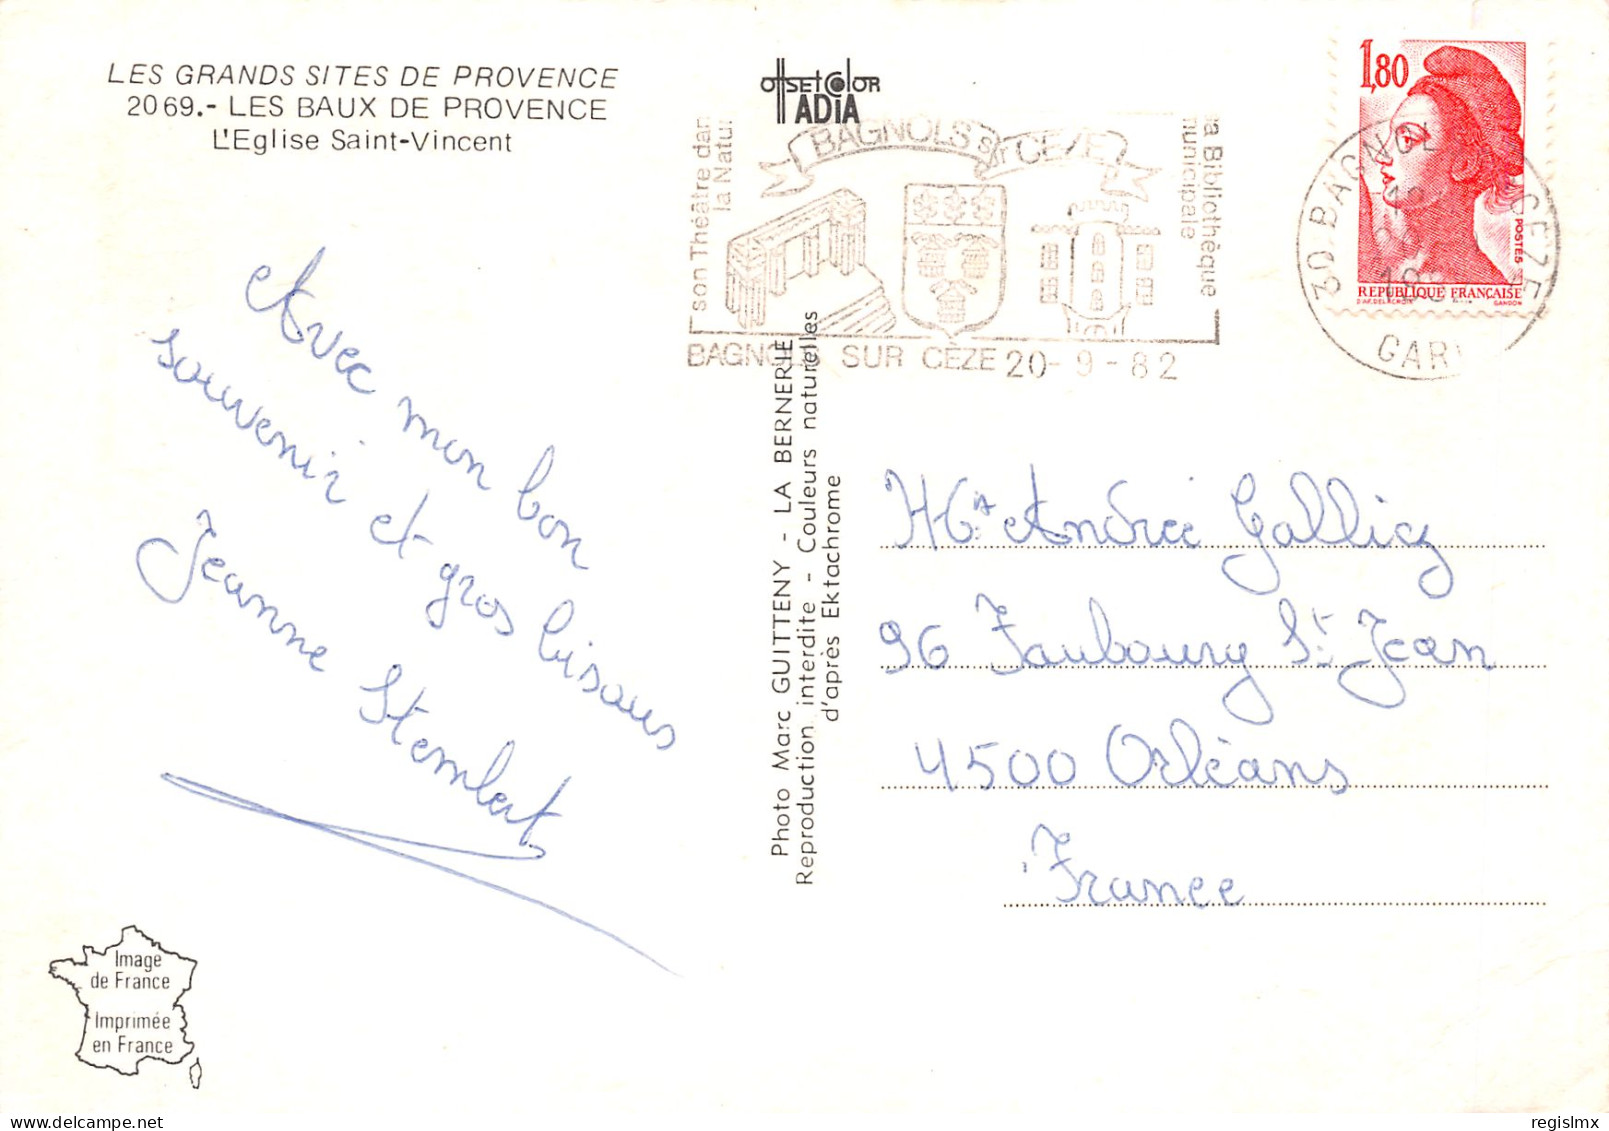 LES GRANDS SITES DE PROVENCE
2069.- LES BAUX DE PROVENCE
L'Eglise Saint-Vincent
Avec mon bon
souvenir et gros bisous
Jeanne Stembert
Image
de France
Imprimée
en France
offset color
ADIA
son Théâtre dan
la Natu
BAGNOLS sur CEZE
a Bibliothèque
municipale
BAGNOLS SUR CEZE 20-9-82
Photo Marc GUITTENY - LA BERNERIE
Reproduction interdite - Couleurs naturelles
d'après Ektachrome
1,80
POSTES
REPUBLIQUE FRANÇAISE
D'AP. DELACROIX GANDON
30 BAGNOL CEZE
GAR
Andrée Gallicy
96 Faubourg St. Jean
4500 Orléans
France
regislmx